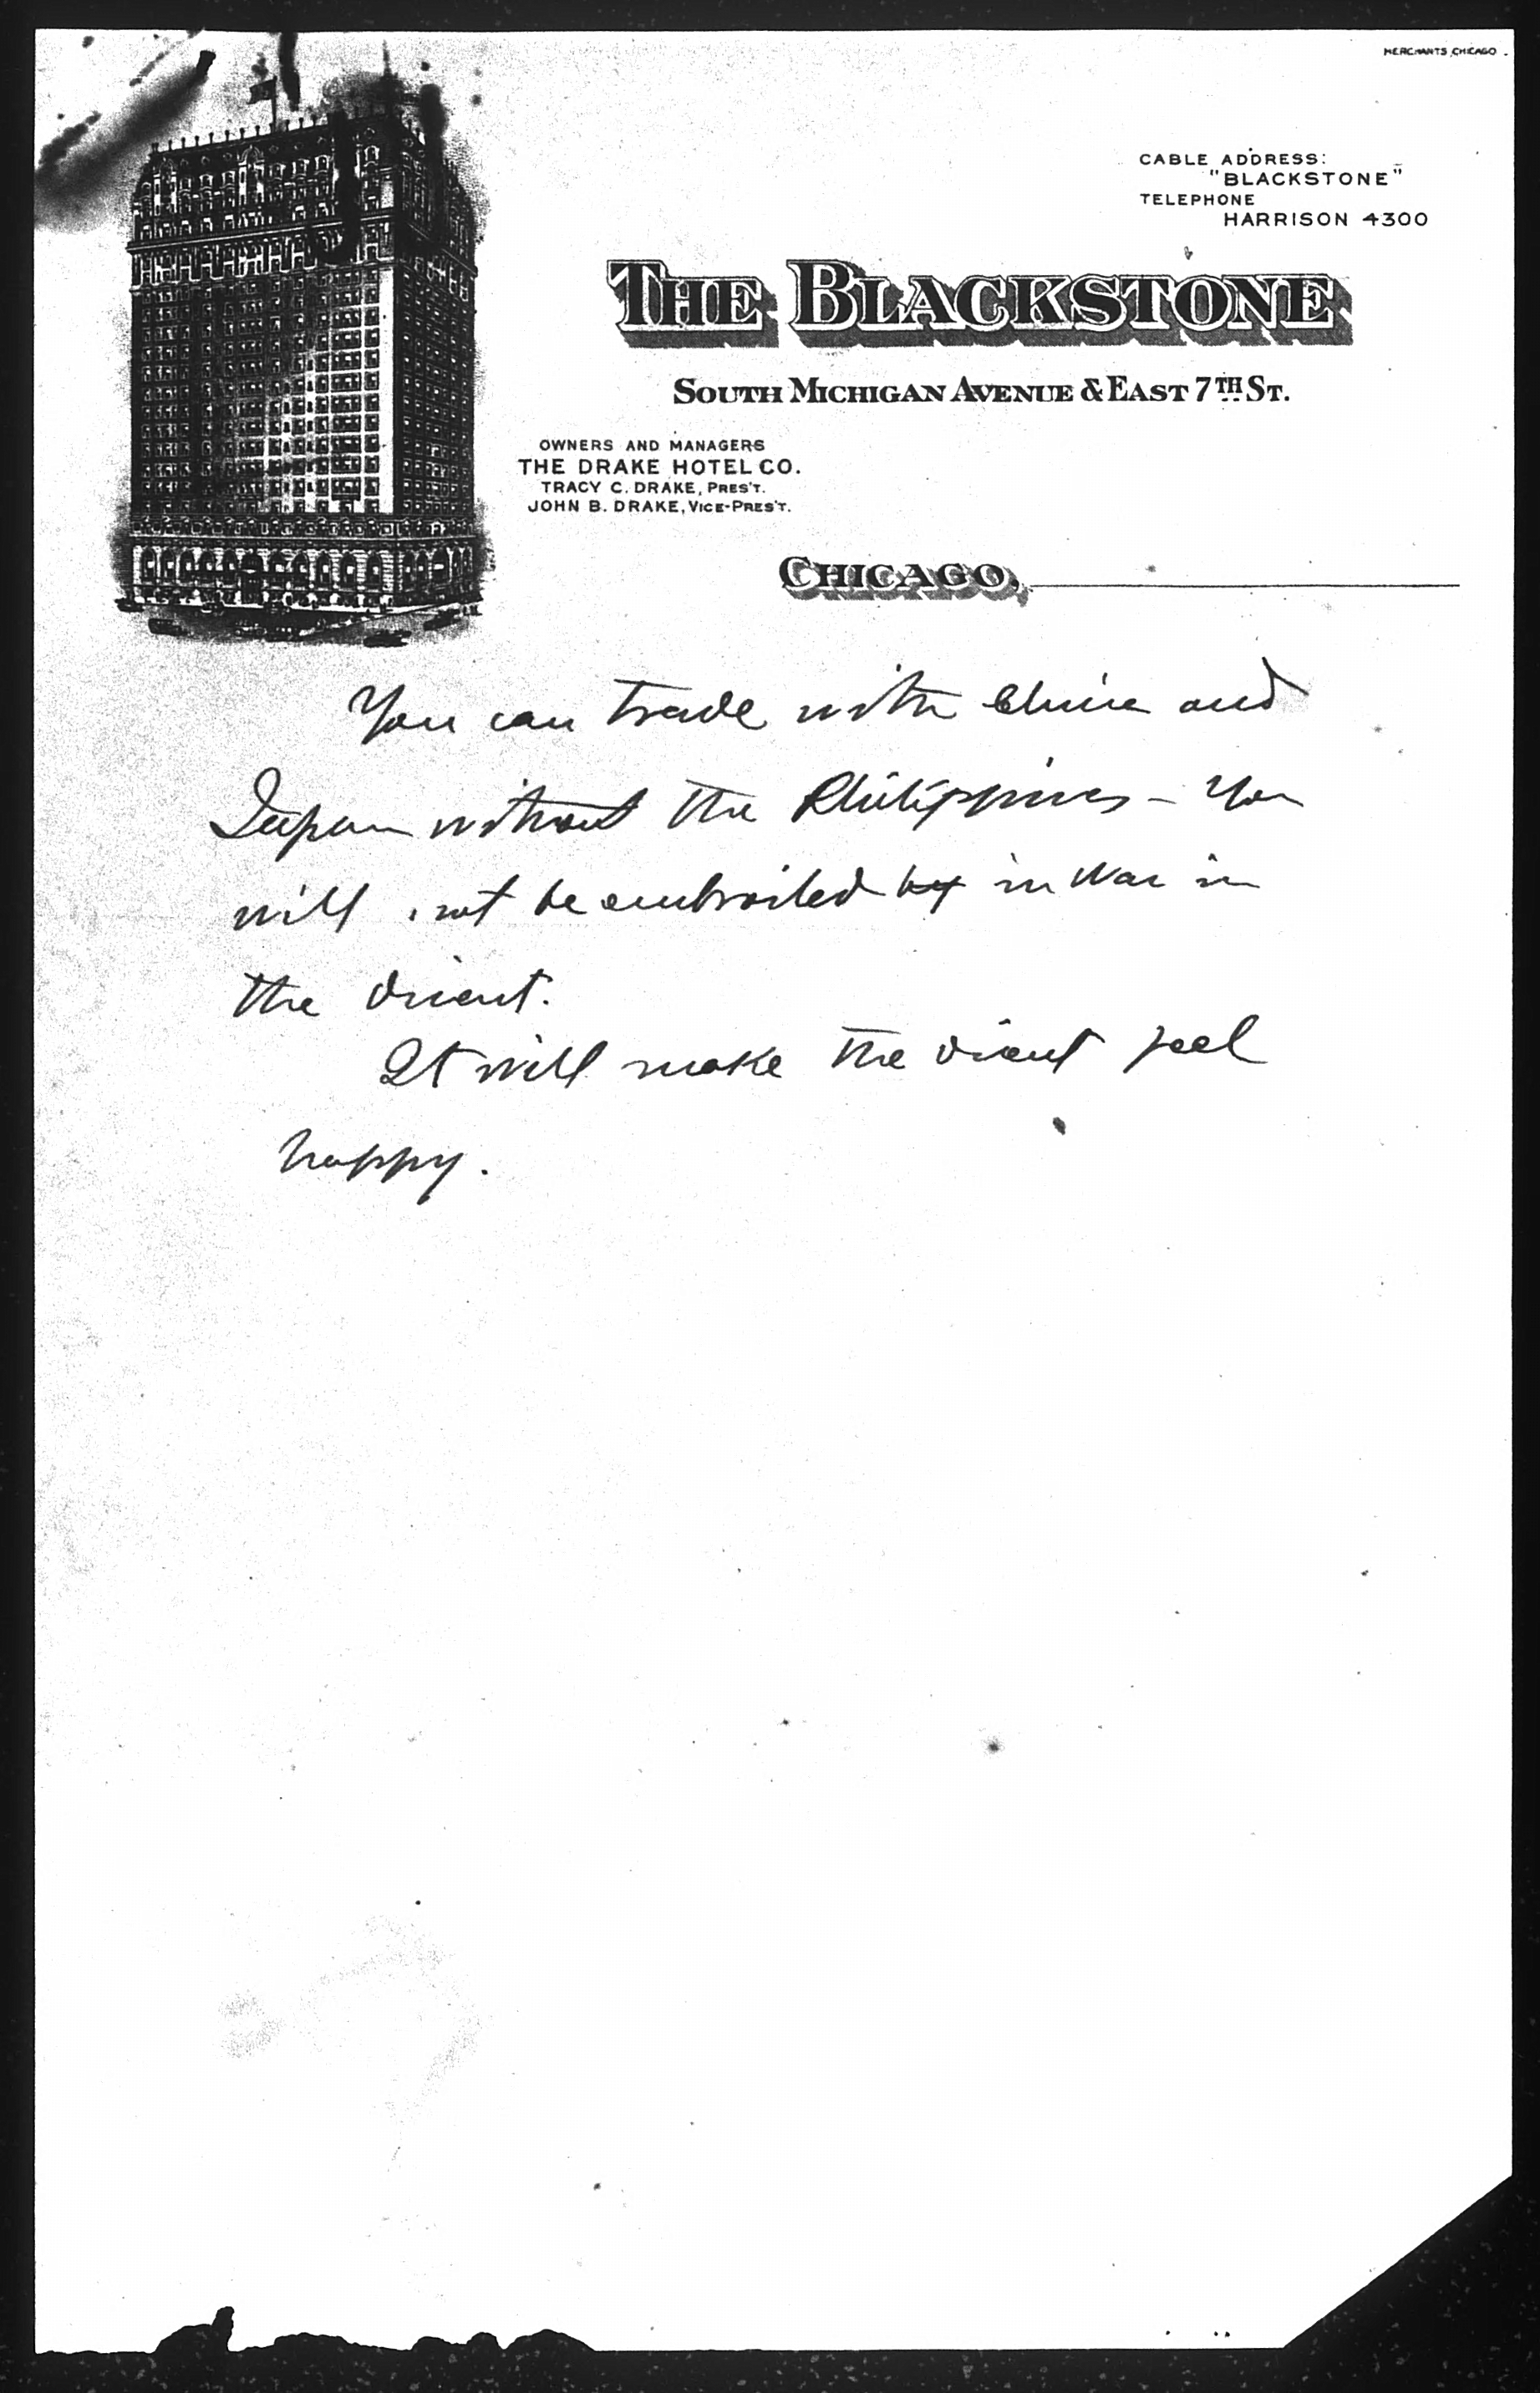 MERCHANTS CHICAGO.
CABLE ADDRESS:
"BLACKSTONE"
TELEPHONE
HARRISON 4300
THE BLACKSTONE
SOUTH MICHIGAN AVENUE & EAST 7TH ST.
OWNERS AND MANAGERS
THE DRAKE HOTEL CO.
TRACY C. DRAKE, PRES'T.
JOHN B. DRAKE, VICE-PRES'T.
CHICAGO,
You can trade with China and
Japan without the Philippines - You
will not be embroiled by in War in
the Orient.
It will make the orient feel
happy.